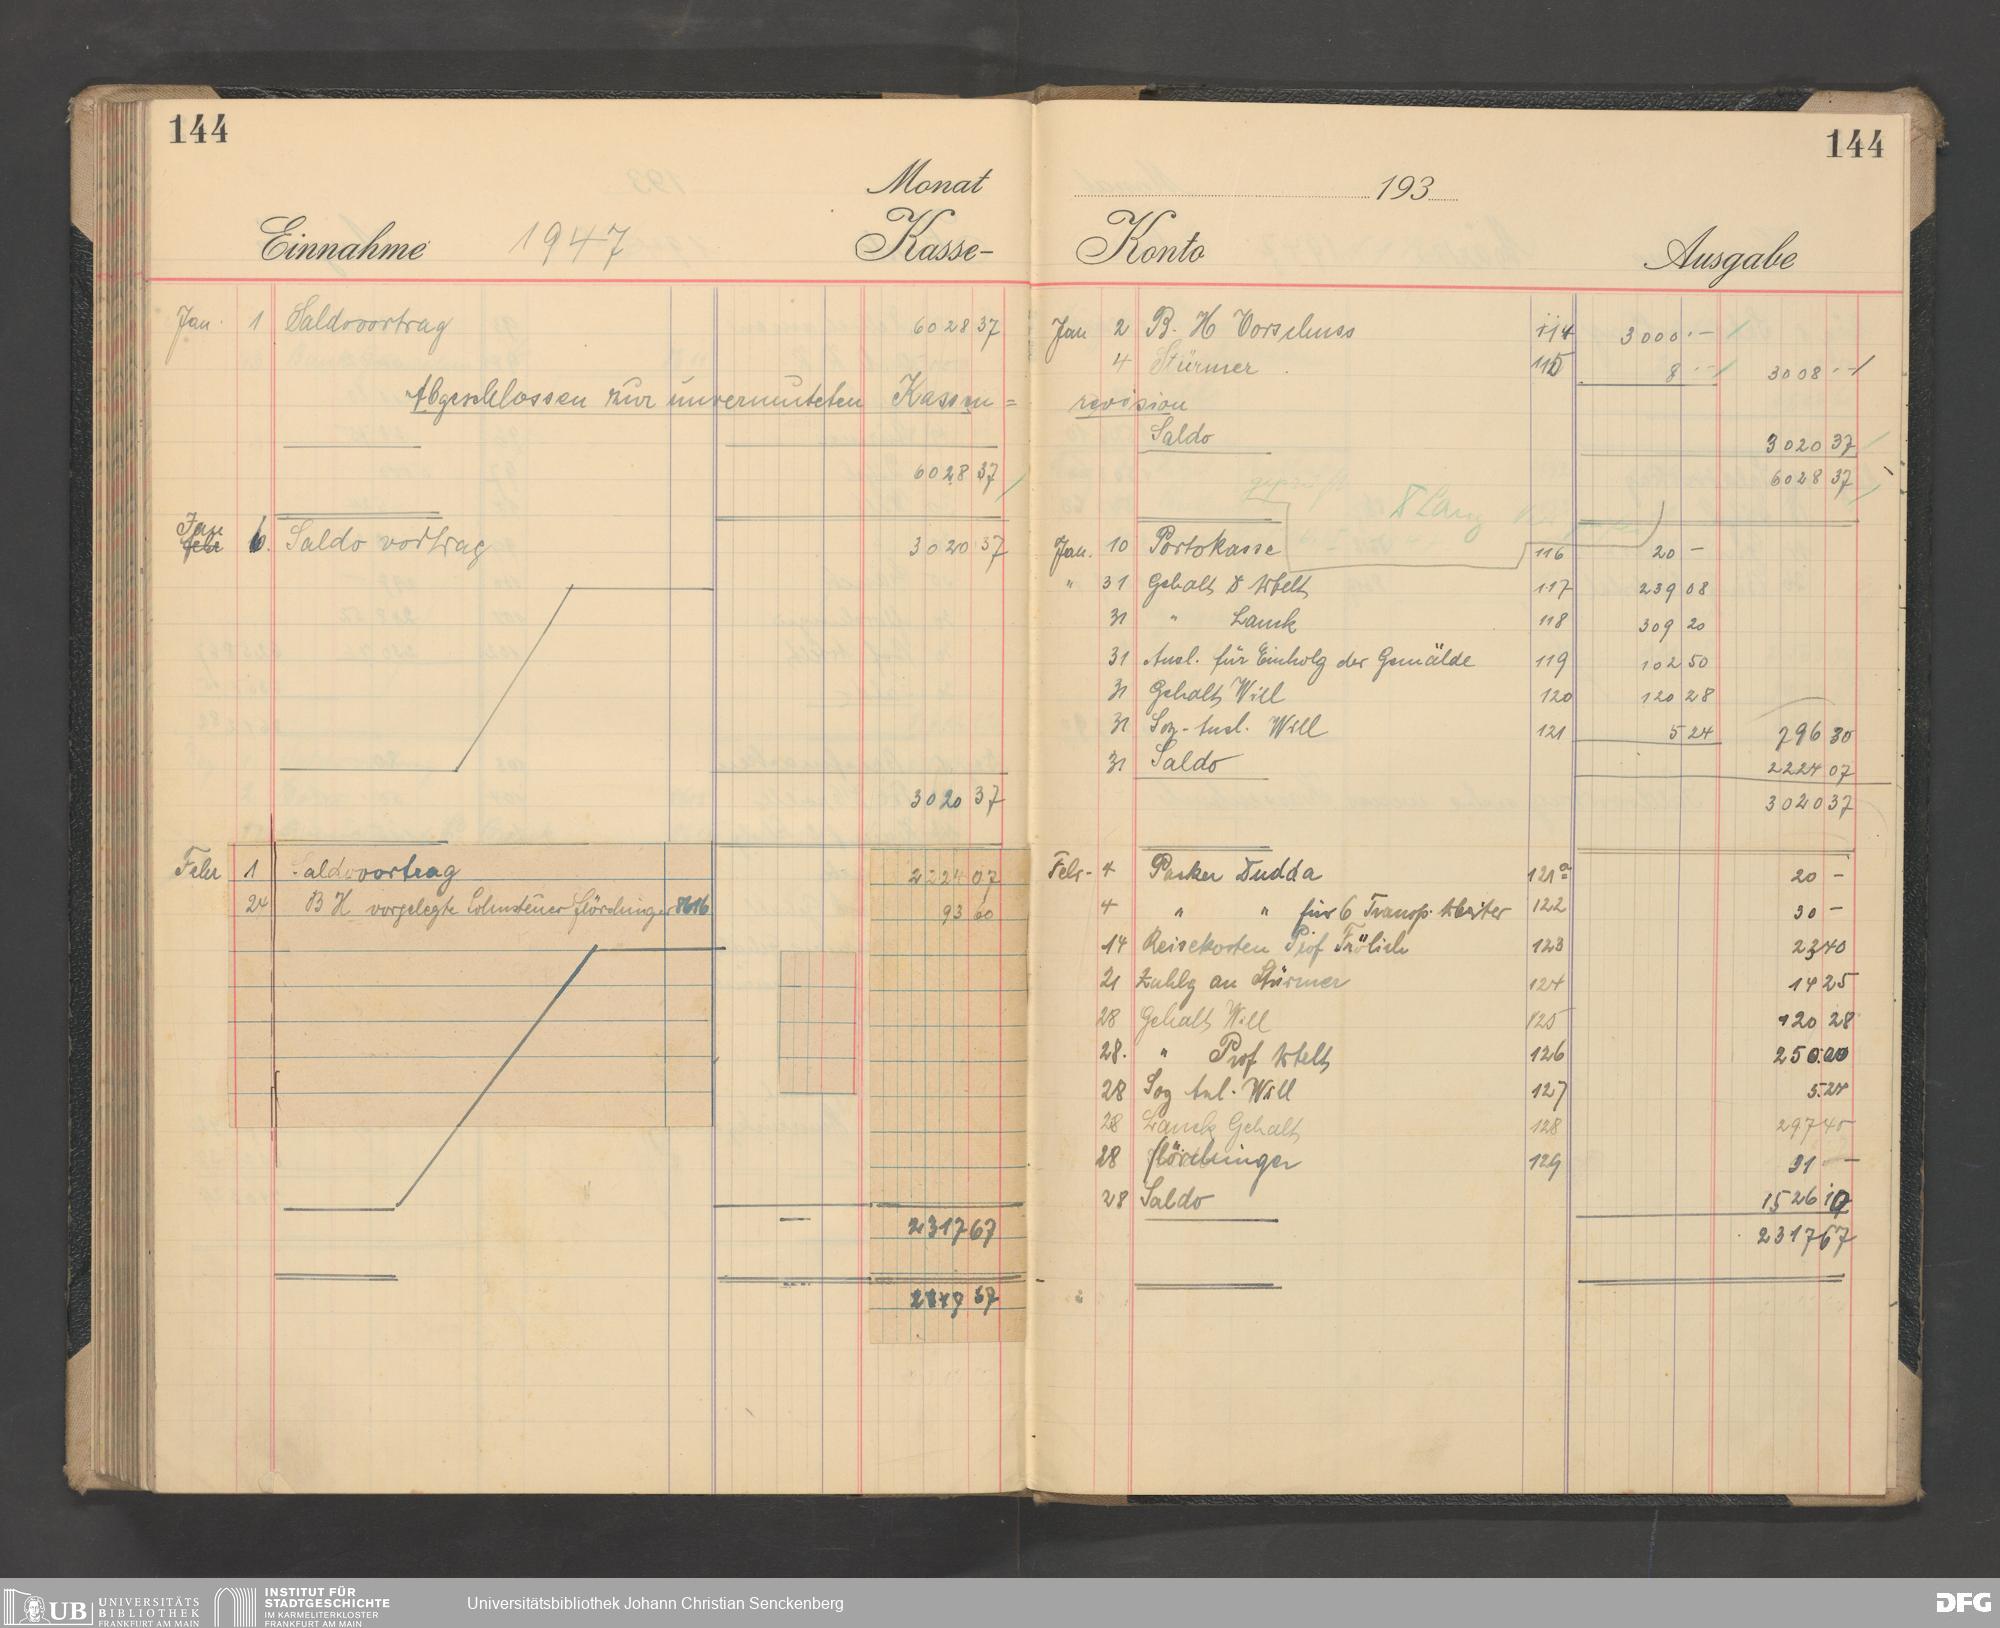 144
Monat
Einnahme 1947 Kasse-
Jan. 1 Saldovortrag 6028 37
Abgeschlossen zur unvermuteten Kassen=
6028 37
Jan
Febr 6. Saldovortrag 3020 37
3020 37
Febr 1 Saldovortrag 2224 07
24 B H vorgelegte Lohnsteuer Flörchinger 93 60
2317 67
67
144
193
Konto Ausgabe
Jan 2 B. H Vorschuss 114 3000.—
4 Stürmer 115 8.— 3008.—
revision
Saldo 3020 37
6028 37
geprüft
Lang
Jan. 10 Portokasse 116 20 —
" 31 Gehalt Welt 117 239 08
31 " Lanck 118 309 20
31 Ausl. für Einholg der Gemälde 119 102 50
31 Gehalt Will 120 120 28
31 Soz-Ausl. Will 121 5 24 796 30
31 Saldo 2224 07
3020 37
Febr- 4 Packer Dudda 121a 20 —
4 " " für 6 Transp. Arbeiter 122 30 —
14 Reisekosten Prof Frölich 123 23 40
21 Zahlg an Stürmer 124 14 25
28 Gehalt Will 125 120 28
28. " Prof Welt 126 250.00
28 Soz Anl. Will 127 5.24
28 Lanck Gehalt 128 297 40
28 Flörchinger 129 31 —
28 Saldo 1526 10
2317 67
UB UNIVERSITÄTS
BIBLIOTHEK
FRANKFURT AM MAIN
INSTITUT FÜR
STADTGESCHICHTE
IM KARMELITERKLOSTER
FRANKFURT AM MAIN
Universitätsbibliothek Johann Christian Senckenberg
DFG